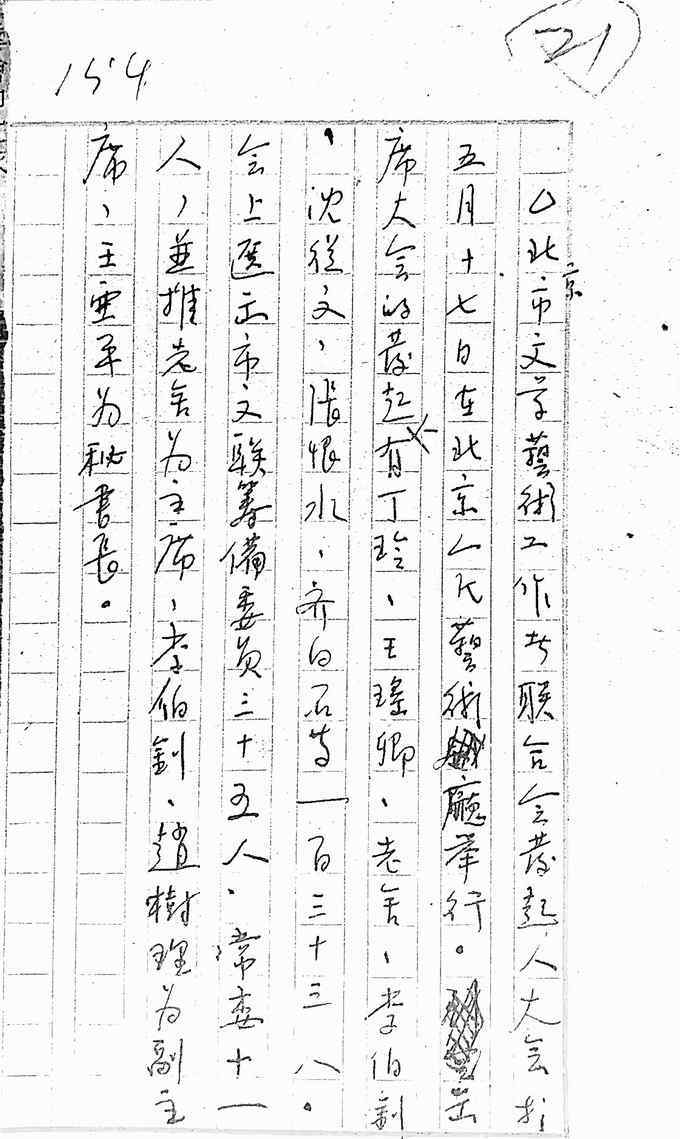 154
21
△北京市文学藝術工作者联合会發起人大会於
五月十七日在北京人民藝術廳举行。出
席大会的發起有丁玲、王瑤卿、老舍、李伯釗
、沈從文、張恨水、齐白石等一百三十三人。
会上選出市文联籌備委員三十五人、常委十一
人,並推老舍为主席、李伯釗、趙樹理为副主
席、王亜平为秘書長。